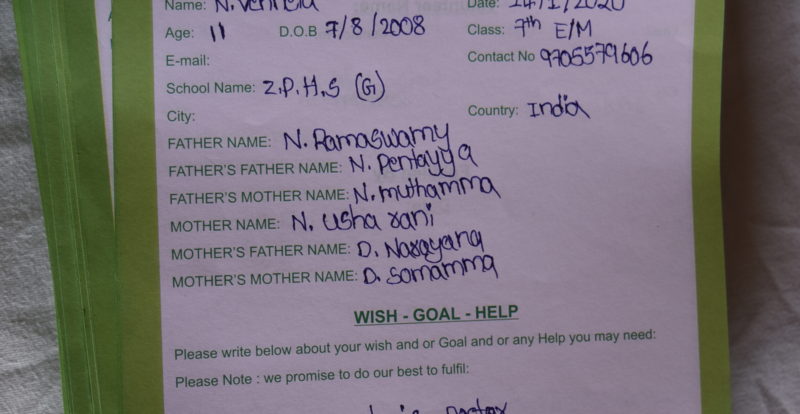 Name: N. Date: 14/1/2020
Age: 11 D.O.B 7/8/2008 Class: 7th E/M
E-mail: Contact No 9705579606
School Name: Z.P.H.S (G)
City: Country: India
FATHER NAME: N. Ramaswamy
FATHER'S FATHER NAME: N. Pentayya
FATHER'S MOTHER NAME: N. muthamma
MOTHER NAME: N. usha rani
MOTHER'S FATHER NAME: D. Narayana
MOTHER'S MOTHER NAME: D. Somamma
WISH - GOAL - HELP
Please write below about your wish and or Goal and or any Help you may need:
Please Note : we promise to do our best to fulfil: